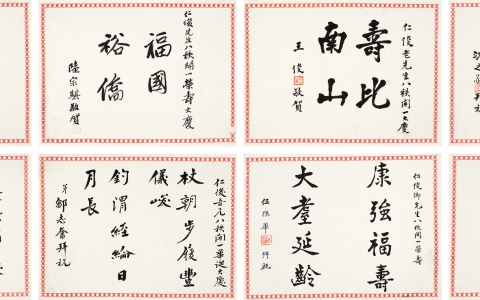 仁俊先生八秩開一榮壽大慶
福國
裕僑
陸宗騏敬賀
仁俊老先生八秩開一大慶
壽比
南山
王俊 敬賀
仁俊吾兄八秩開一華誕大慶
杖朝步履豐
儀峻
釣渭經綸日
月長
弟鄒志奮拜祝
仁俊鄉先生八秩開一榮壽
康強福壽
大耋延齡
伍振華 拜祝